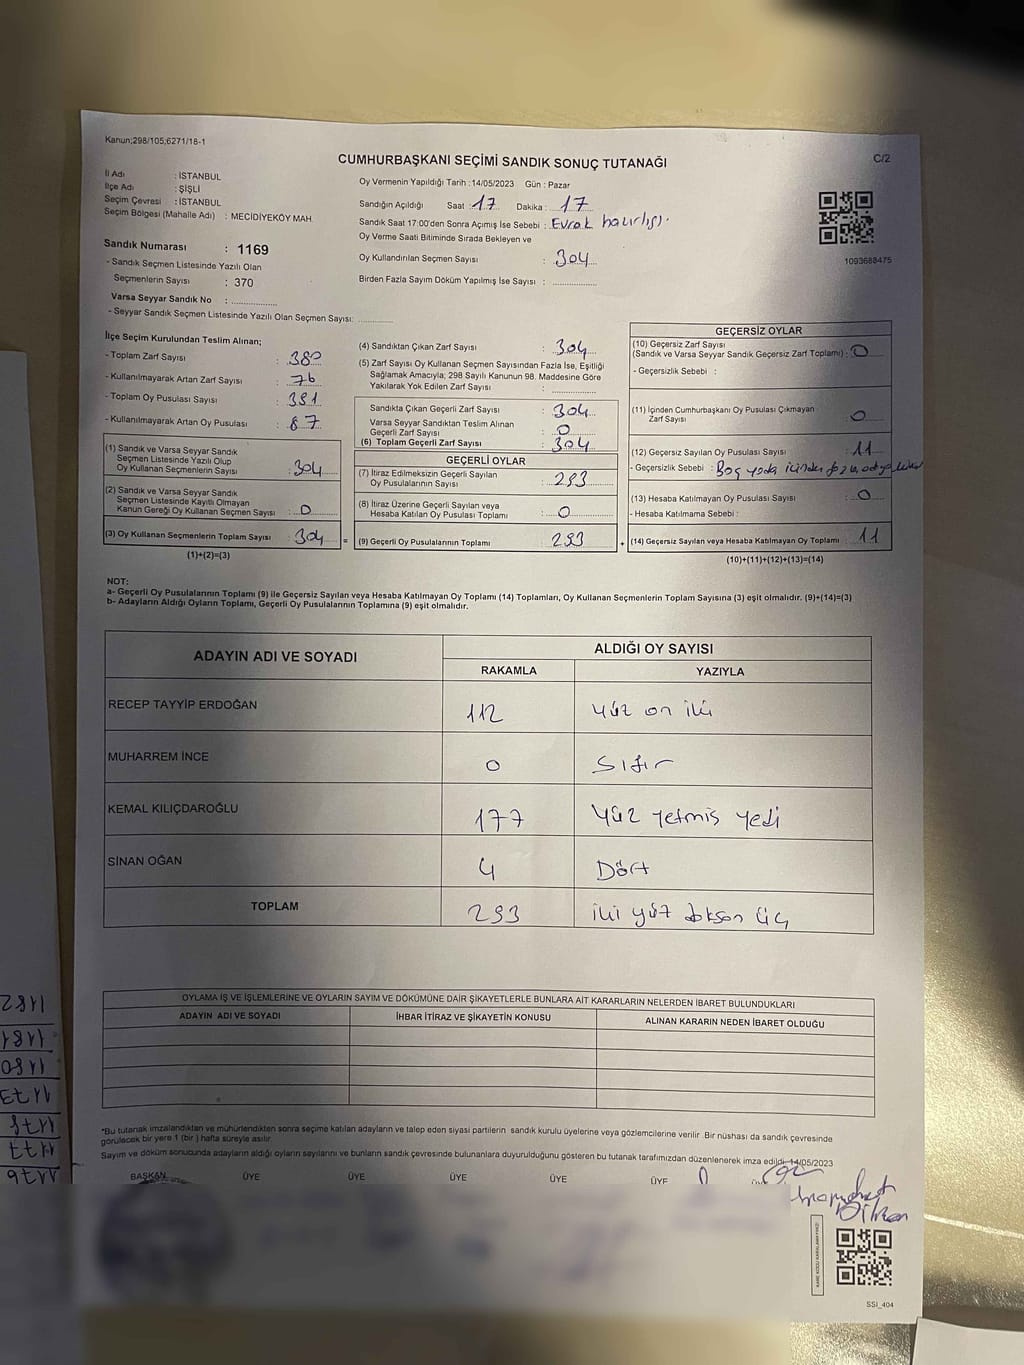 Kanun;298/105;6271/18-1
CUMHURBAŞKANI SEÇİMİ SANDIK SONUÇ TUTANAĞI
C/2
İl Adı : İSTANBUL
İlçe Adı : ŞİŞLİ
Seçim Çevresi : İSTANBUL
Seçim Bölgesi (Mahalle Adı) : MECİDİYEKÖY MAH.
Sandık Numarası : 1169
- Sandık Seçmen Listesinde Yazılı Olan
Seçmenlerin Sayısı : 370
Varsa Seyyar Sandık No :
- Seyyar Sandık Seçmen Listesinde Yazılı Olan Seçmen Sayısı:
Oy Vermenin Yapıldığı Tarih :14/05/2023 Gün : Pazar
Sandığın Açıldığı Saat : 17 Dakika : 17
Sandık Saat 17:00'den Sonra Açımış İse Sebebi : Evrak hazırlığı.
Oy Verme Saati Bitiminde Sırada Bekleyen ve
Oy Kullandırılan Seçmen Sayısı : 304
Birden Fazla Sayım Döküm Yapılmış İse Sayısı :
1093688475
İlçe Seçim Kurulundan Teslim Alınan;
- Toplam Zarf Sayısı : 380
- Kullanılmayarak Artan Zarf Sayısı : 76
- Toplam Oy Pusulası Sayısı : 381
- Kullanılmayarak Artan Oy Pusulası : 87
(1) Sandık ve Varsa Seyyar Sandık
Seçmen Listesinde Yazılı Olup
Oy Kullanan Seçmenlerin Sayısı : 304
(2) Sandık ve Varsa Seyyar Sandık
Seçmen Listesinde Kayıtlı Olmayan
Kanun Gereği Oy Kullanan Seçmen Sayısı : 0
(3) Oy Kullanan Seçmenlerin Toplam Sayısı : 304
(1)+(2)=(3)
(4) Sandıktan Çıkan Zarf Sayısı : 304
(5) Zarf Sayısı Oy Kullanan Seçmen Sayısından Fazla İse, Eşitliği
Sağlamak Amacıyla; 298 Sayılı Kanunun 98. Maddesine Göre
Yakılarak Yok Edilen Zarf Sayısı :
Sandıkta Çıkan Geçerli Zarf Sayısı : 304
Varsa Seyyar Sandıktan Teslim Alınan
Geçerli Zarf Sayısı : 0
(6) Toplam Geçerli Zarf Sayısı : 304
GEÇERLİ OYLAR
(7) İtiraz Edilmeksizin Geçerli Sayılan
Oy Pusulalarının Sayısı : 293
(8) İtiraz Üzerine Geçerli Sayılan veya
Hesaba Katılan Oy Pusulası Toplamı : 0
= (9) Geçerli Oy Pusulalarının Toplamı 293
GEÇERSİZ OYLAR
(10) Geçersiz Zarf Sayısı
(Sandık ve Varsa Seyyar Sandık Geçersiz Zarf Toplamı) : 0
- Geçersizlik Sebebi :
(11) İçinden Cumhurbaşkanı Oy Pusulası Çıkmayan
Zarf Sayısı : 0
(12) Geçersiz Sayılan Oy Pusulası Sayısı : 11
- Geçersizlik Sebebi : Boş yada içinden fazla
(13) Hesaba Katılmayan Oy Pusulası Sayısı : 0
- Hesaba Katılmama Sebebi :
+ (14) Geçersiz Sayılan veya Hesaba Katılmayan Oy Toplamı : 11
(10)+(11)+(12)+(13)=(14)
NOT:
a- Geçerli Oy Pusulalarının Toplamı (9) ile Geçersiz Sayılan veya Hesaba Katılmayan Oy Toplamı (14) Toplamları, Oy Kullanan Seçmenlerin Toplam Sayısına (3) eşit olmalıdır. (9)+(14)=(3)
b- Adayların Aldığı Oyların Toplamı, Geçerli Oy Pusulalarının Toplamına (9) eşit olmalıdır.
ADAYIN ADI VE SOYADI
ALDIĞI OY SAYISI
RAKAMLA YAZIYLA
RECEP TAYYİP ERDOĞAN 112 Yüz on iki
MUHARREM İNCE 0 Sıfır
KEMAL KILIÇDAROĞLU 177 Yüz yetmiş yedi
SİNAN OĞAN 4 Dört
TOPLAM 293 iki yüz doksan üç
OYLAMA İŞ VE İŞLEMLERİNE VE OYLARIN SAYIM VE DÖKÜMÜNE DAİR ŞİKAYETLERLE BUNLARA AİT KARARLARIN NELERDEN İBARET BULUNDUKLARI
ADAYIN ADI VE SOYADI İHBAR İTİRAZ VE ŞİKAYETİN KONUSU ALINAN KARARIN NEDEN İBARET OLDUĞU
*Bu tutanak imzalandıktan ve mühürlendikten sonra seçime katılan adayların ve talep eden siyasi partilerin sandık kurulu üyelerine veya gözlemcilerine verilir. Bir nüshası da sandık çevresinde
görülecek bir yere 1 (bir ) hafta süreyle asılır.
Sayım ve döküm sonucunda adayların aldığı oyların sayılarını ve bunların sandık çevresinde bulunanlara duyurulduğunu gösteren bu tutanak tarafımızdan düzenlenerek imza edildi. 14/05/2023
BAŞKAN ÜYE ÜYE ÜYE ÜYE ÜYE
SSI_404
1182
1181
1180
1179
1178
1177
1176